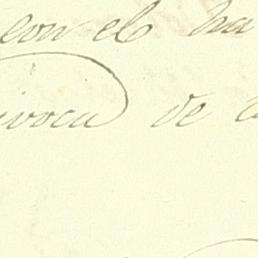 con el ha
ivoca de